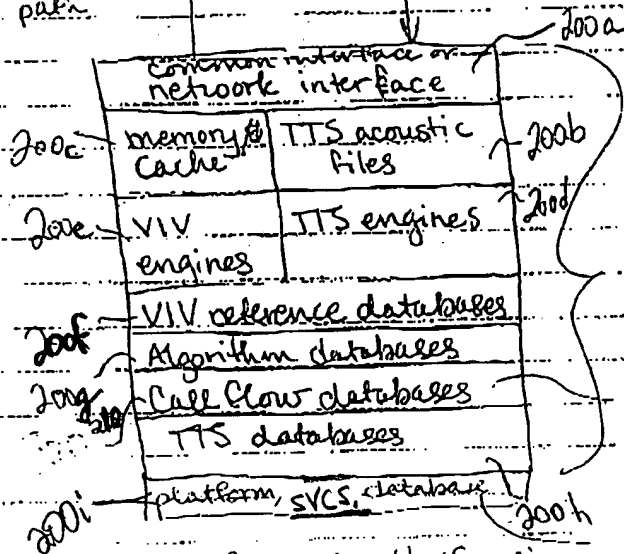 path
200a
common interface or
network interface
200c
memory &
cache
TTS acoustic
files
200b
200d
200e
VIV
engines
TTS engines
VIV reference databases
200f
Algorithm databases
200g
Call flow databases
210
TTS databases
platform, SVCS, database
200i
200h